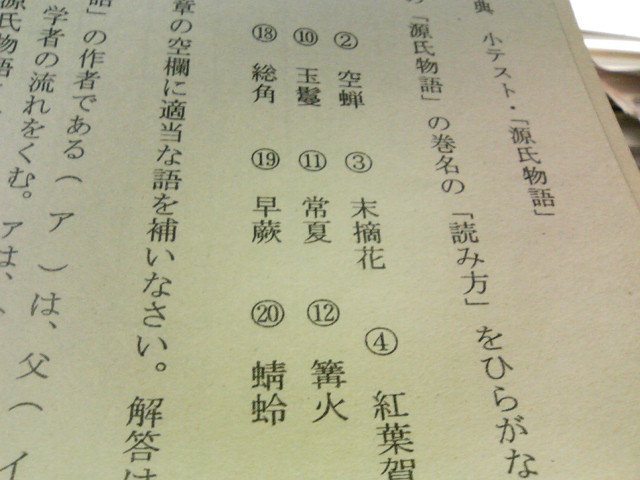 典 小テスト・「源氏物語」
「源氏物語」の巻名の「読み方」をひらがな
② 空蝉 ③ 末摘花 ④ 紅葉賀
⑩ 玉鬘 ⑪ 常夏 ⑫ 篝火
⑱ 総角 ⑲ 早蕨 ⑳ 蜻蛉
章の空欄に適当な語を補いなさい。解答は
語」の作者である（ ア ）は、父（ イ
学者の流れをくむ。アは、
源氏物語